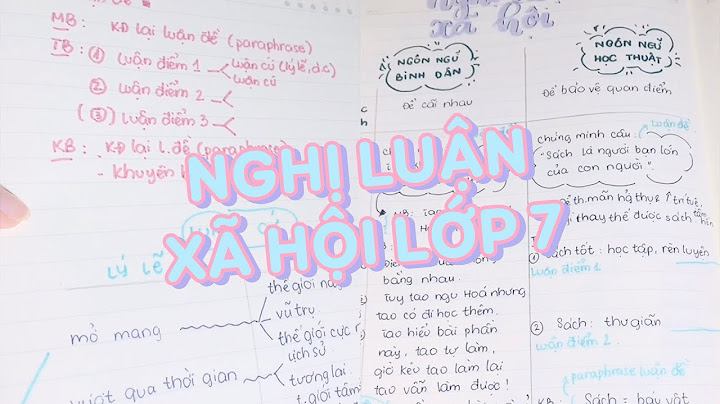 MB: KĐ lại luận đề (paraphrase)
TB: ① luận điểm 1 luận cứ (lý lẽ, d.c)
luận cứ
② luận điểm 2
(③) luận điểm 3
KB: - KĐ lại l.đề (paraphrase)
- Khuyên
lý lẽ
mở mang
thế giới
vũ trụ
thế giới cực
lịch sử
vượt qua thời gian
tương lai
t.giới tâm
xã hội
NGÔN NGỮ
BÌNH DÂN
Để cãi nhau
bằng nhau.
Tuy tao ngu Hoá nhưng
tao có đi học thêm.
Tao hiểu bài phần
này, tao tự làm,
giờ kêu tao làm lại
tao vẫn làm được!
NGÔN NGỮ
HỌC THUẬT
Để bảo vệ quan điểm
luận đề
chứng minh câu:
"Sách là người bạn lớn
của con người".
thay thế được sách
① Sách tốt: học tập, rèn luyện
luận điểm 1
② Sách: thư giãn
luận điểm 2
paraphrase luận đề
KB: Sách = báu vật
NGHỊ LUẬN
XÃ HỘI LỚP 7